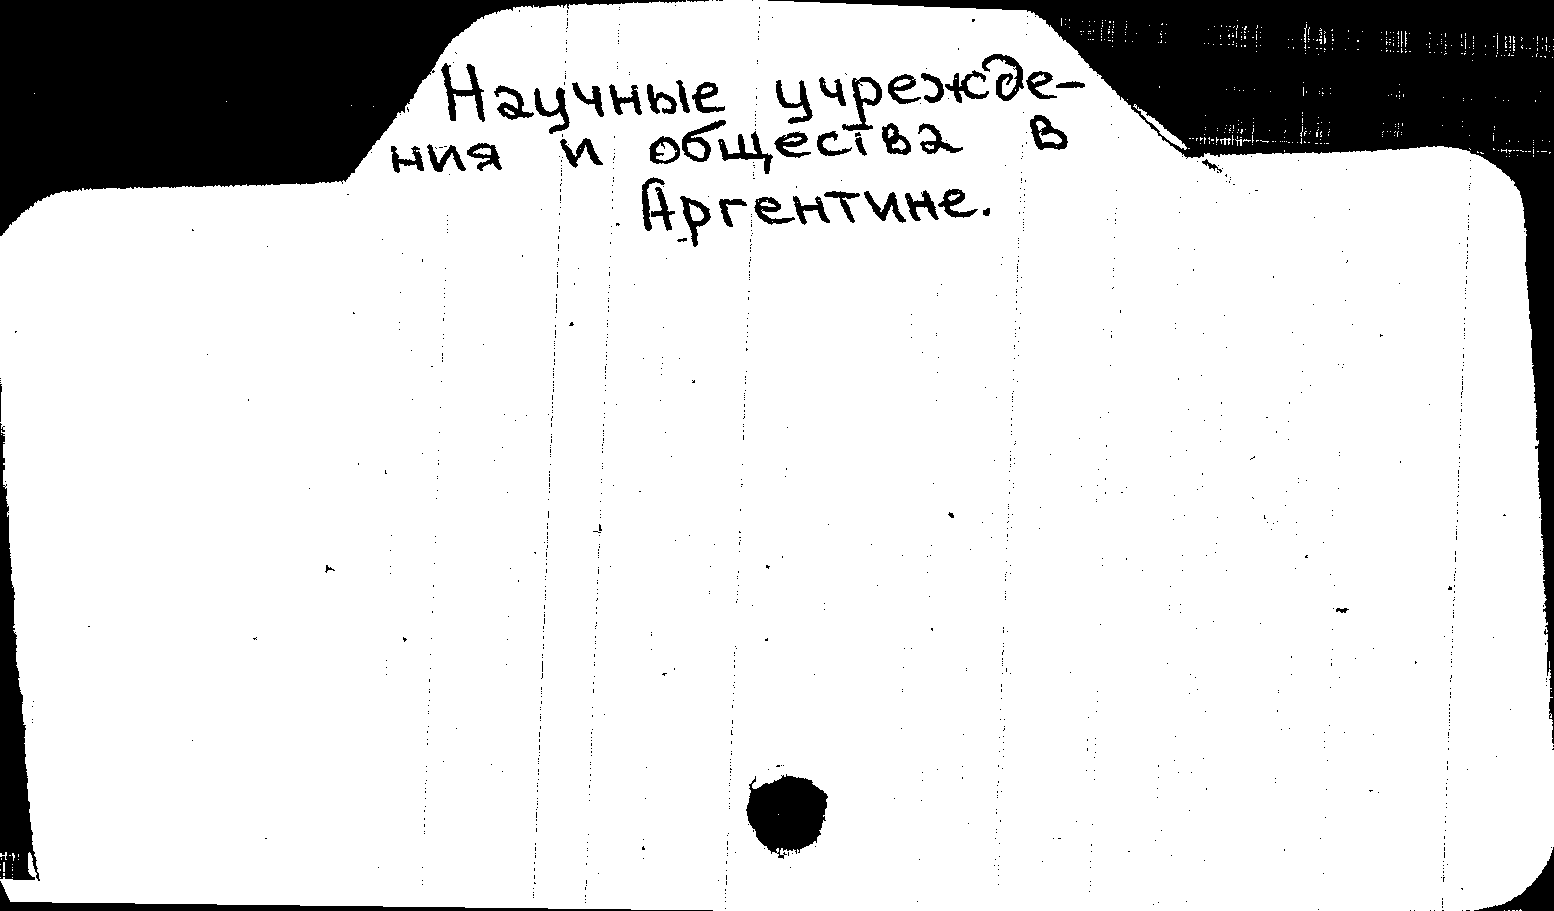 Научные учрежде-
ния и общества в
Аргентине.